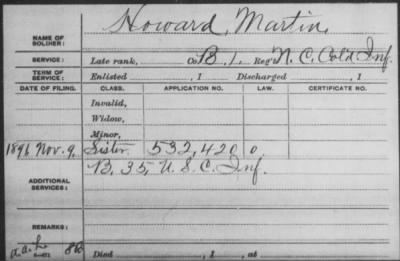 NAME OF SOLDIER: Howard, Martin,
SERVICE: Late rank, Co. B, 1, Reg't N. C. Cold Inf.
TERM OF SERVICE: Enlisted , 1 Discharged , 1
DATE OF FILING. CLASS. APPLICATION NO. LAW. CERTIFICATE NO.
Invalid,
Widow,
Minor,
Nov. 9, Sister 532,420 0
ADDITIONAL SERVICES: B, 35, U. S. C. Inf.
REMARKS:
Died , 1 , at